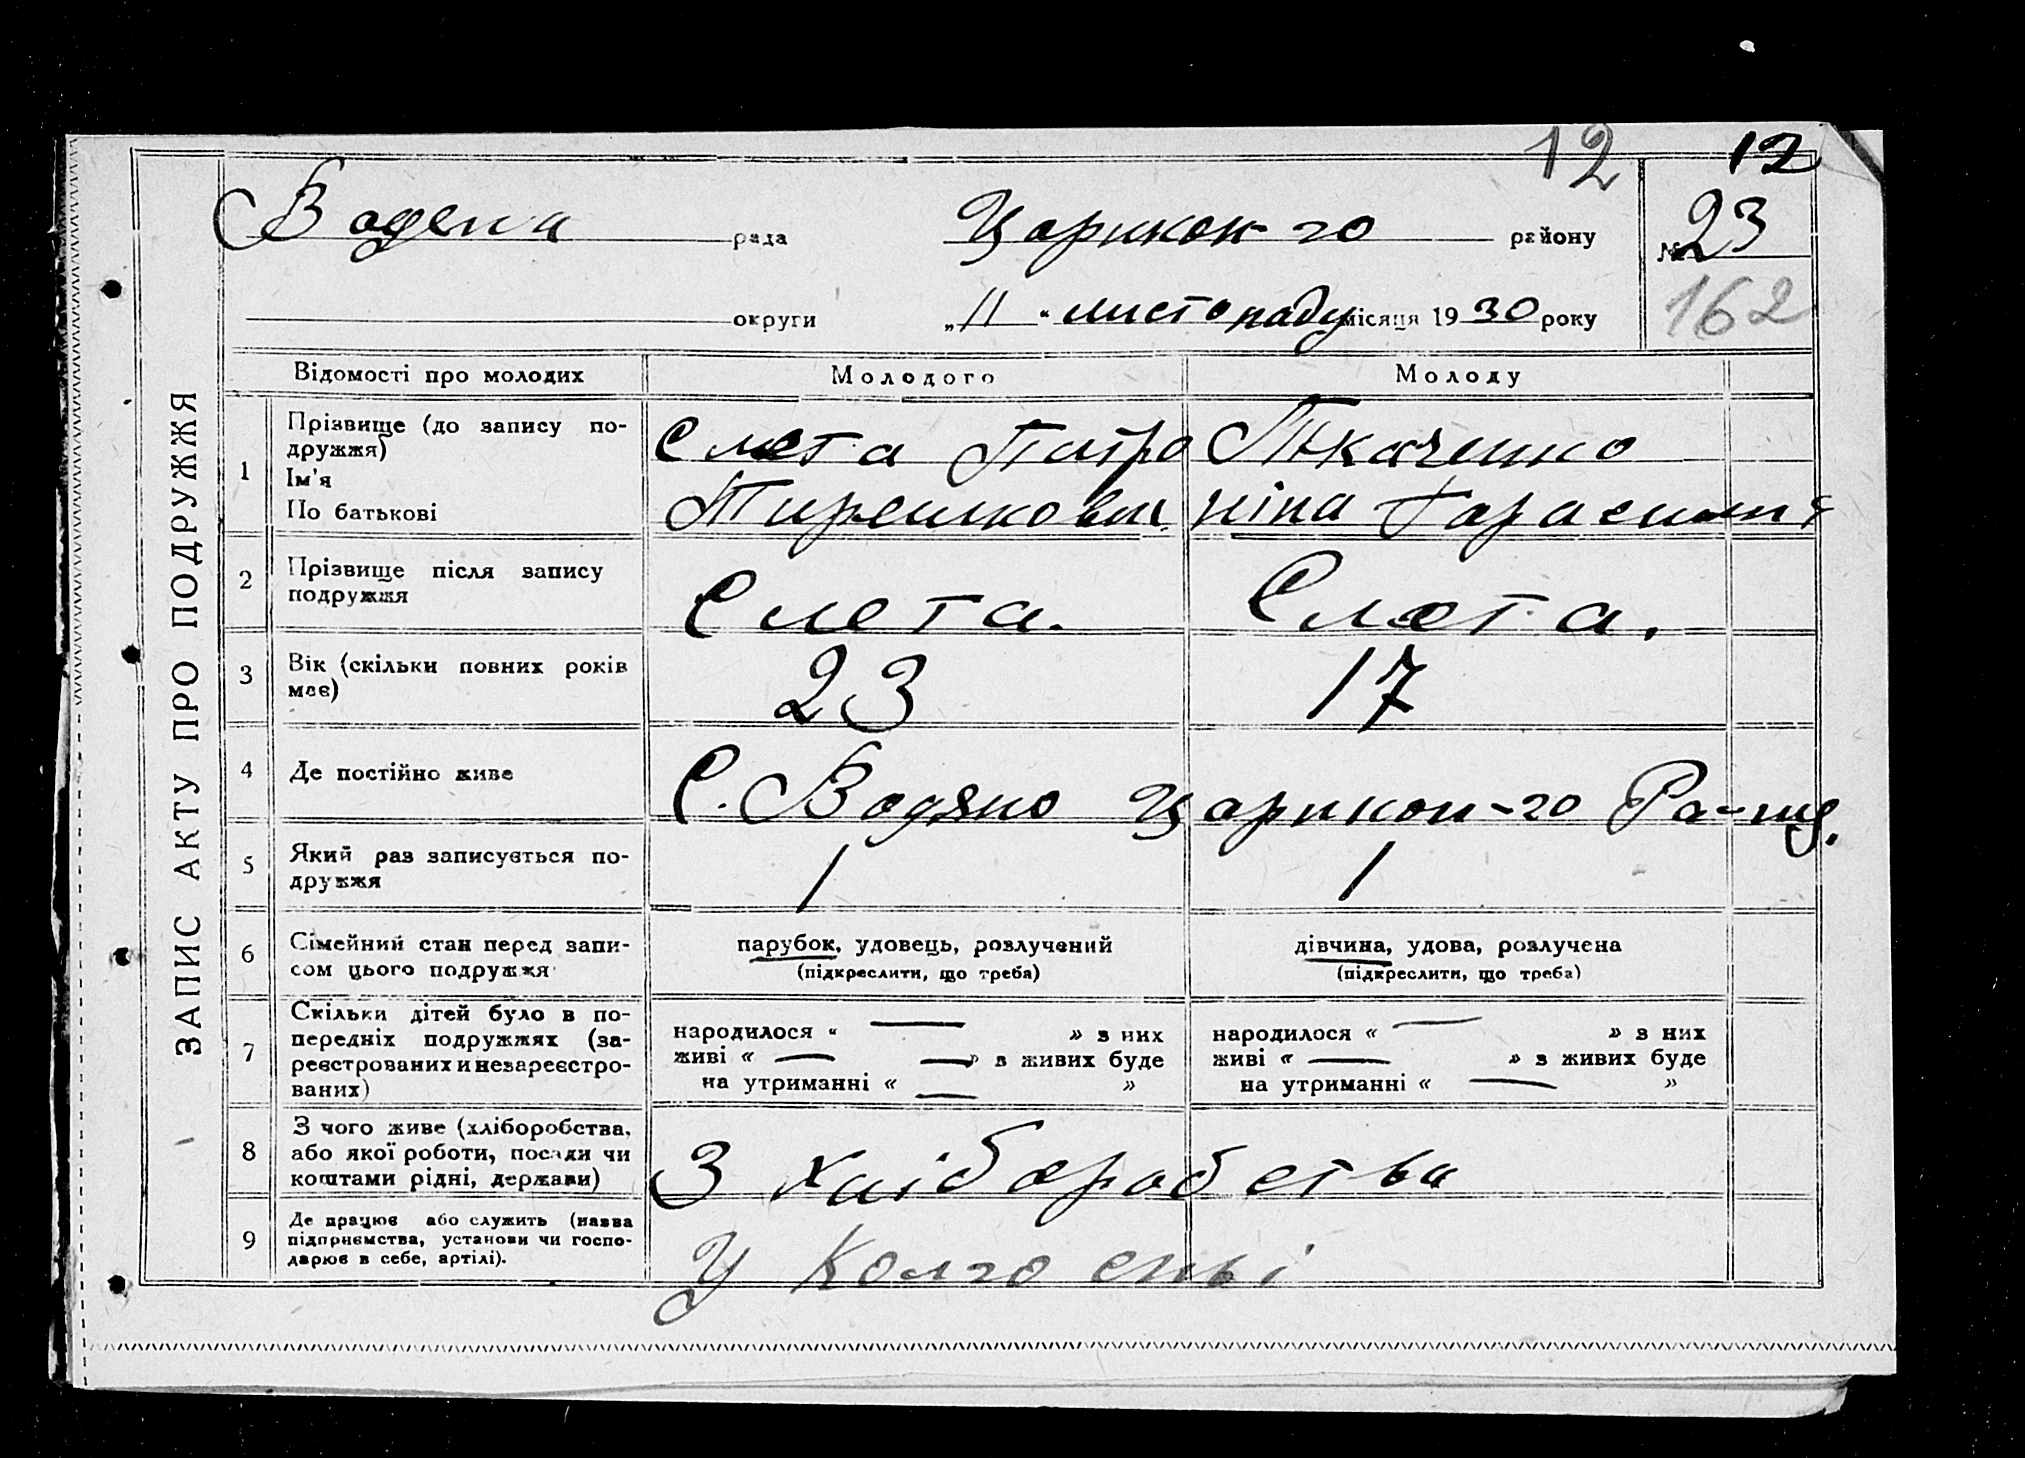 12 12
Водена рада Царикон-го району № 23
округи „11“ листопаду місяця 1930 року 162
ЗАПИС АКТУ ПРО ПОДРУЖЖЯ
Відомості про молодих Молодого Молоду
1 Прізвище (до запису по-
дружжя)
Ім'я
По батькові
Слета Петро Ткаченко
ніна
2 Прізвище після запису
подружжя
Слета. Слета.
3 Вік (скільки повних років
має) 23 17
4 Де постійно живе С. Водяно Царикон-го Ра-ну.
5 Який раз записується по-
дружжя 1 1
6 Сімейний стан перед запи-
сом цього подружжя
парубок, удовець, розлучений дівчина, удова, розлучена
(підкреслити, що треба) (підкреслити, що треба)
7 Скільки дітей було в по-
передніх подружжях (за-
реєстрованих и незареєстро-
ваних)
народилося « — » з них народилося « — » з них
живі « — — » з живих буде живі « — » з живих буде
на утриманні « — » на утриманні « — »
8 З чого живе (хліборобства,
або якої роботи, посади чи
коштами рідні, держави)
З хліборобства
9 Де працює або служить (назва
підприємства, установи чи госпо-
дарює в себе, артілі).
У Колгоспі